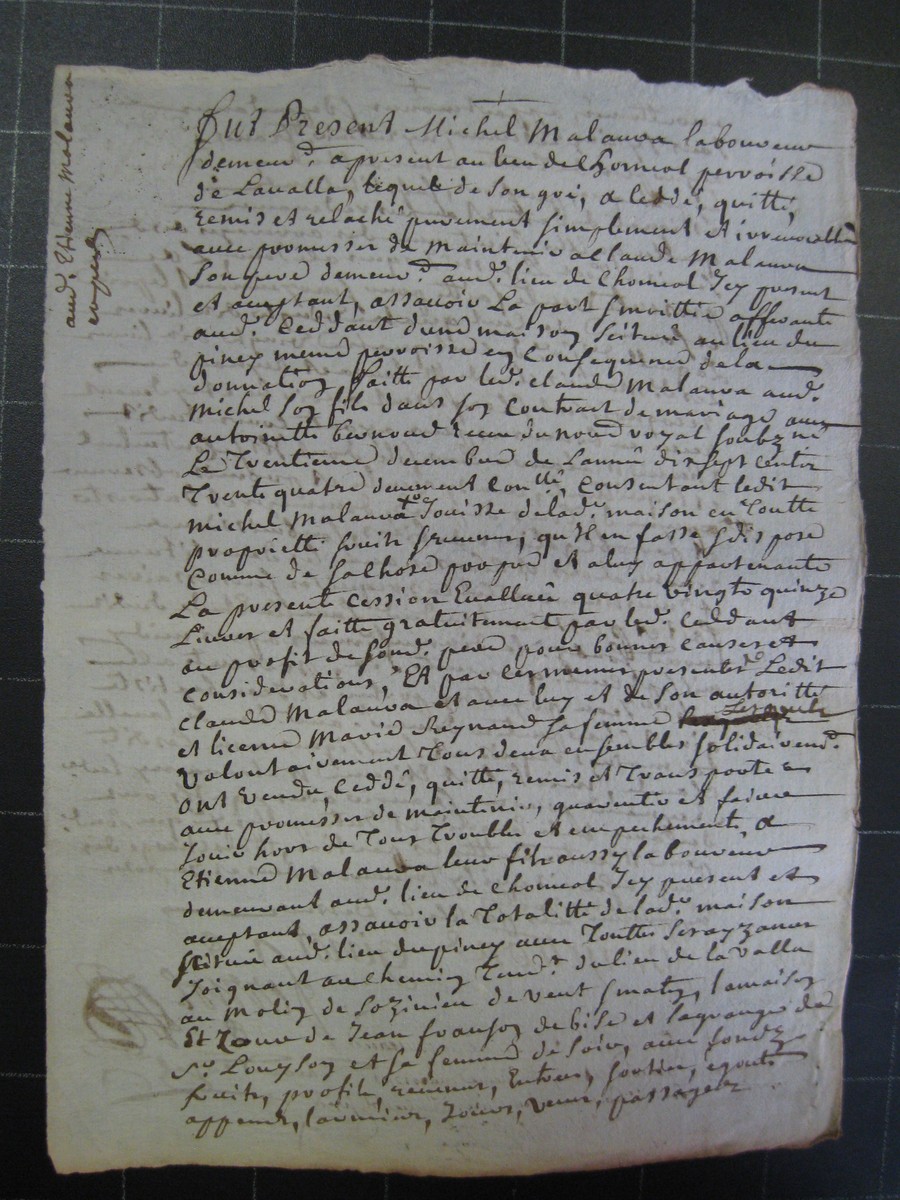 aud. Etienne Malaura
Fut Present Michel Malaura laboureur
demeurd. apresent au lieu de Chomeol perroisse
de Lavalla, lequel de son gré, a ceddé, quitté,
remis et relaché purement simplement et irrevocable
avec promesser de maintenir a Claude Malaura
son pere demeurd. aud. lieu de Chomeol Icy present
et acceptant, assavoir La part & moittie afferante
aud. Ceddant dune maison scituée au lieu du
piney meme perroisse en Consequence de la
donnation faitte par led. Claude Malaura aud.
Michel son fils dans son Contract de mariage avec
antoinette bernoud receu du nore. royal soubzné
Le Trentieme decembre de Lannée dix sept Centz
Trente quatre deuement conllé, Consentant ledit
Michel Malaura Jouisse de lad. maison en Toutte
proprietté fruitz & revenus, qu'il en fasse & dispose
Comme de sa chose propre et a luy appartenante
La presente Cession Evalluée quatre vingtz quinze
Livres et faitte gratuitement par led. Ceddant
au profit de sond. pere pour bonnes causes et
Considerations, Et par ces memes presentes Ledit
Claude Malaura et avec luy et de son autoritté
et licence Marie Reynaud sa femme
Volontairement Tous deux ensembles solidairemt.
ont vendu, Ceddé, quitté, remis et Transporté
avec promesser de maintenir, guarentir et faire
Jouir hors de Tous Troubles et empechements, a
Etienne Malaura leur fils aussy laboureur
demeurant aud. lieu de Chomeol Icy present et
acceptant, assavoir la Totalitté de lad. maison
scituée aud. lieu du piney avec Touttes ses ayzances
Joignant au Chemin Tendt. du lieu de la Valla
au Molin de Sozinieu de vent & matin, la maison
Et Cour de Jean franson de bise et la grange de
Sr. Louyson et sa femme de soir, avec fondz
fruitz, profits, revenus, Entrées, sorties, egoutz
appends, larmiers, Jours, veues, passages